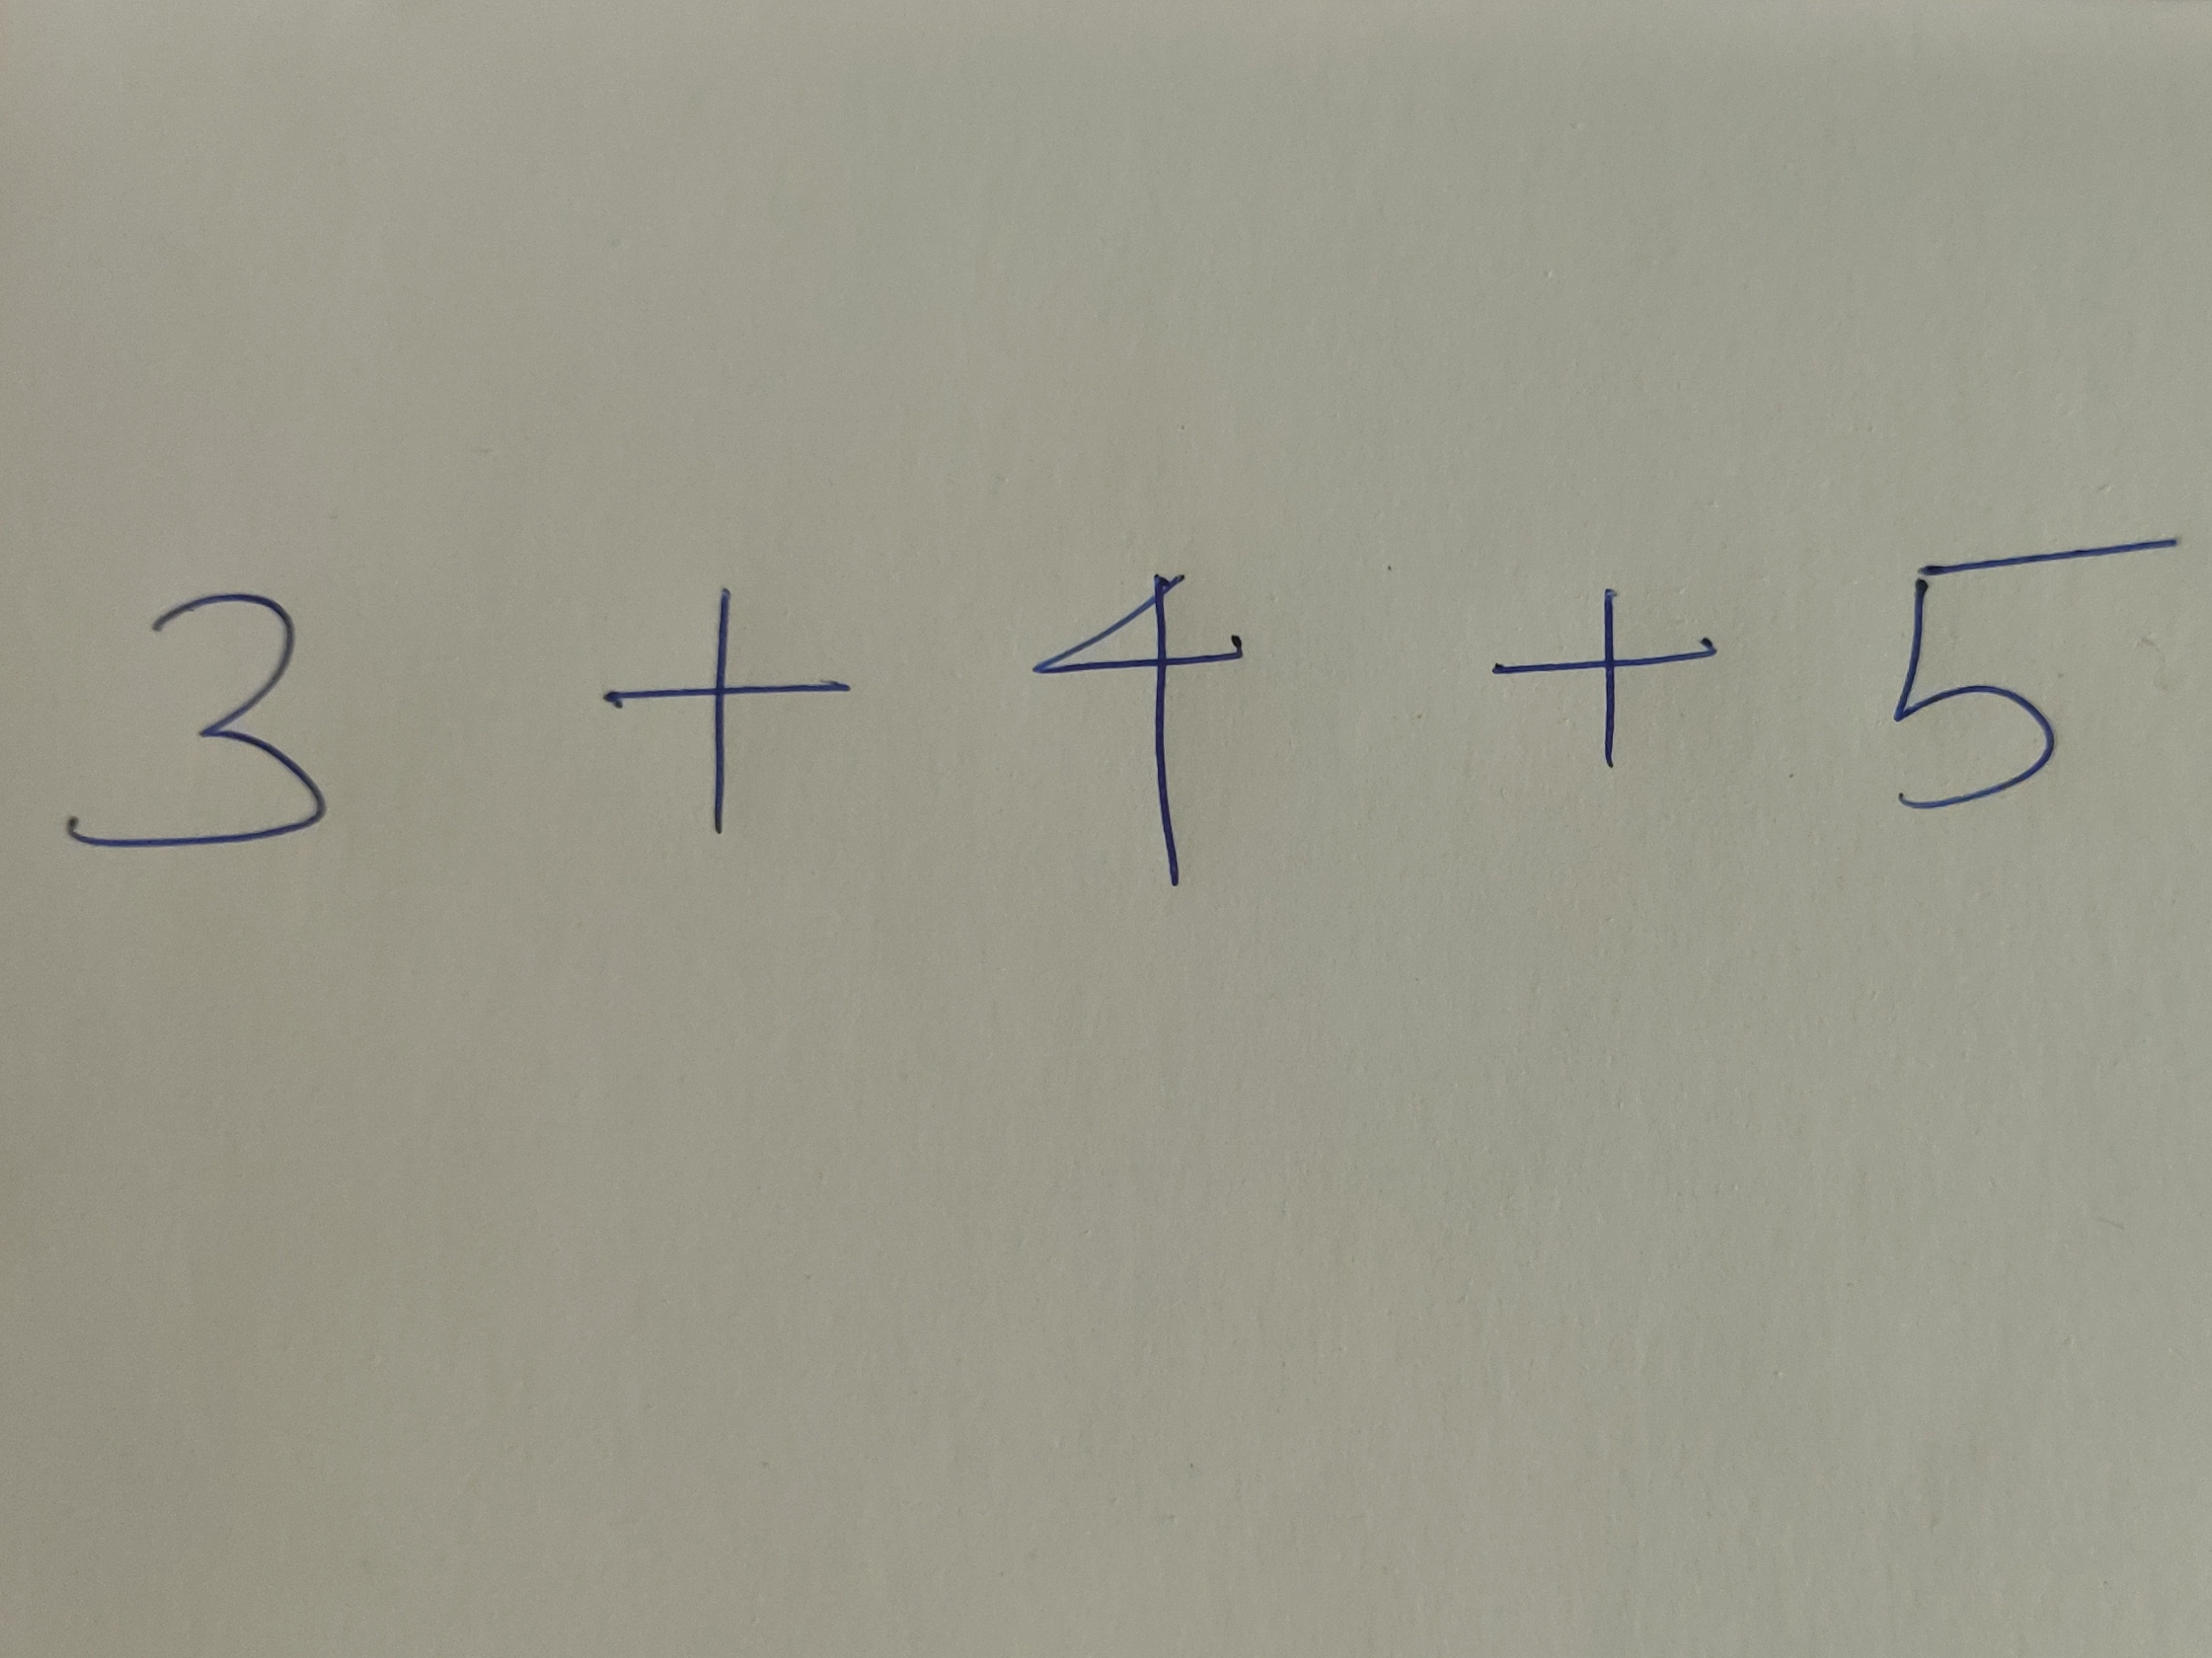 3 + 4 + 5